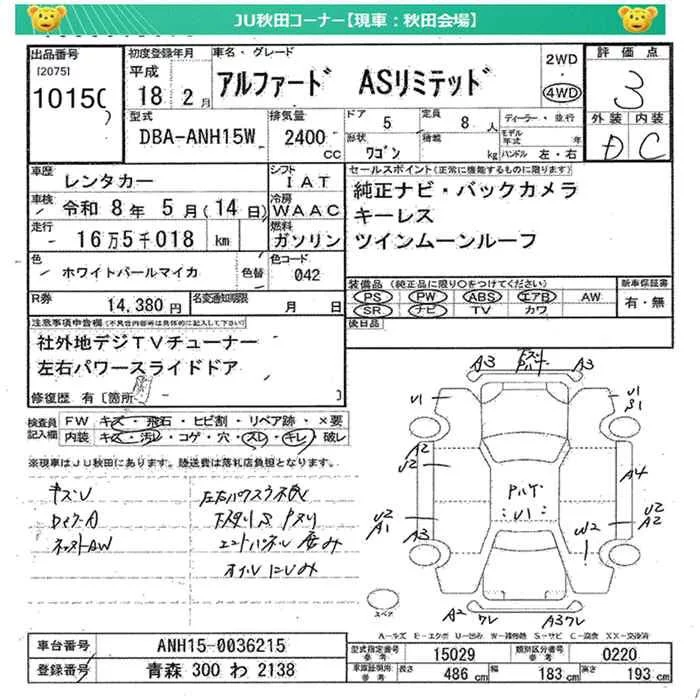 JU秋田コーナー【現車：秋田会場】
出品番号
[2075]
10150
初度登録年月
平成
18 2 月
車名・グレード
アルファード ASリミテッド
2WD
・
4WD
評価点
3
外装 内装
D C
型式
DBA-ANH15W
排気量
2400
CC
ドア
5
定員
8 人
形状
ワゴン
積載
kg
ディーラー・並行
モデル
年式 年
ハンドル 左・右
車歴
レンタカー
シフト
IAT
車検
令和 8年 5月(14日)
冷房
WAAC
走行
16万5千018 km
燃料
ガソリン
色
ホワイトパールマイカ
色替
色コード
042
セールスポイント(正常に機能するものに限ります)
純正ナビ・バックカメラ
キーレス
ツインムーンルーフ
R券
14,380 円
名変通知期限
月 日
装備品 (純正品に限り○をつけてください)
PS PW ABS エアB AW
SR ナビ TV カワ
新車保証書
有・無
後日品
注意事項申告欄
社外地デジTVチューナー
左右パワースライドドア
修復歴 有 [箇所 ]
検査員
記入欄
FW キズ・飛石・ヒビ割・リペア跡・×要
内装 キズ・汚レ・コゲ・穴・スレ・キレ・破レ
※現車はJU秋田にあります。陸送費は落札店負担となります。
キズU
左右パワスラ
下廻りS
オイルにじみ
A3
A3
U1
U1
S1
A2
U2
A4
U2
A1
A3
U2
A2
W2
U1
A2
ワレ
A3ワレ
スペア
A－ルズ E－エクボ U－凹み W－補修跡 S－サビ C－腐食 XX－交換済
車台番号
ANH15-0036215
登録番号
青森 300 わ 2138
型式指定番号
参考
15029
類別区分番号
参考
0220
車庫証明用
参考
長さ 486 cm 幅 183 cm 高さ 193 cm